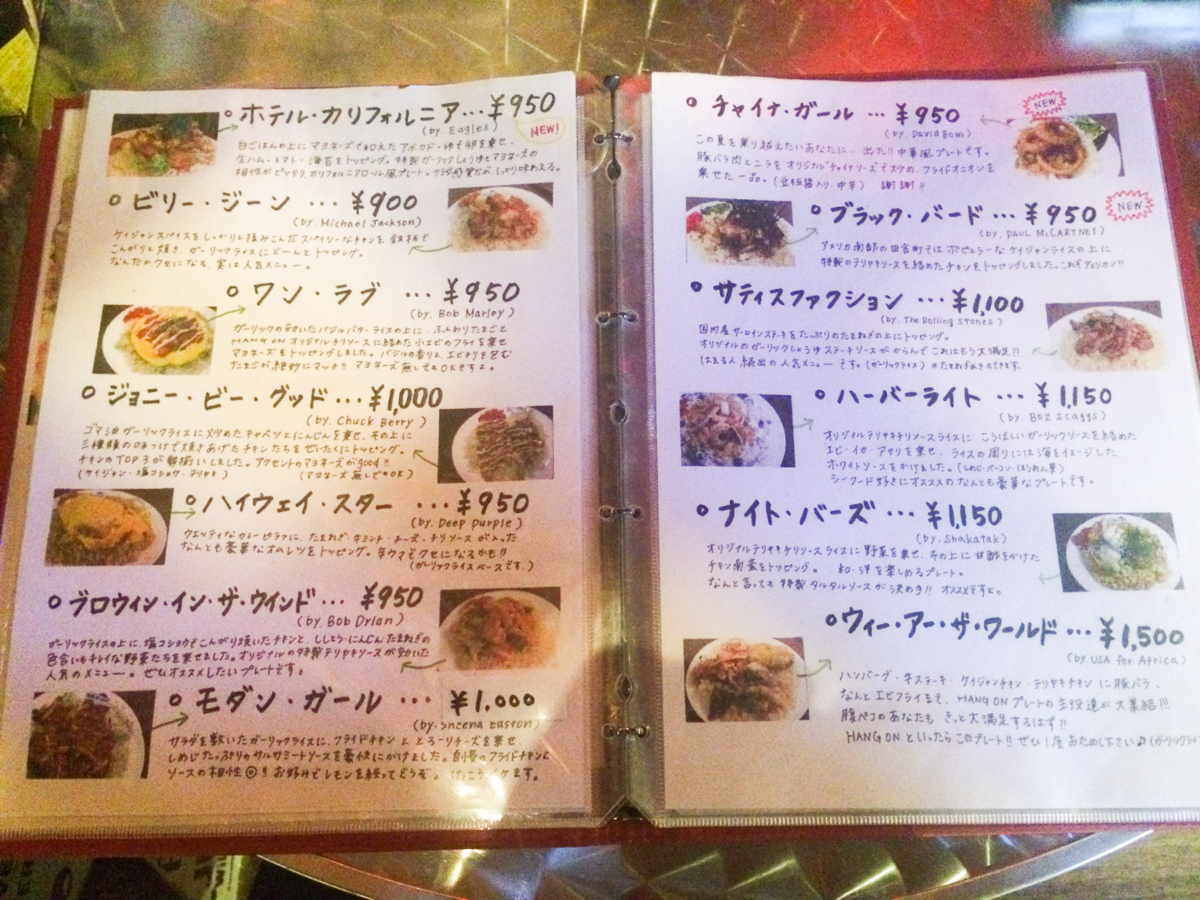 ホテル・カリフォルニア…¥950
(by. Eagles)
NEW!
白ごはんの上にマヨネーズで和えたアボカド・ゆで卵を乗せ、
生ハム・トマト・海苔をトッピング。特製ガーリックしょうゆとマヨネーズの
相性がピッタリ カリフォルニアロール風プレート。サラダ感覚だがしっかり味わえる。
ビリー・ジーン …¥900
(by. Michael Jackson)
ケイジャンスパイスをしっかりと揉みこんだスパイシーなチキンを 鉄板で
こんがりと焼き、ガーリックライスにどーんとトッピング。
なんだかクセになる、実は人気メニュー。
ワン・ラブ …¥950
(by. Bob Marley)
ガーリックの効いたバジルバターライスの上に、ふんわりたまごと
HANG ON オリジナルチリソースに絡めた小エビのフライを乗せ
マヨネーズをトッピングしました。バジルの香りと、エビチリを包む
たまごが絶妙にマッチ!! マヨネーズ無しでもOKですよ。
ジョニー・ビー・グッド…¥1,000
(by. Chuck Berry)
ゴマ油ガーリックライスに炒めたキャベツとにんじんを乗せ、その上に
三種類の味つけで焼きあげたチキンたちをぜいたくにトッピング。
チキンのTOP3が勢揃いしました。アクセントのマヨネーズがgood!!
(ケイジャン・塩コショウ・テリヤキ) (マヨネーズ無しでもOK)
ハイウェイ・スター …¥950
(by. Deep Purple)
ウエッティなカレーピラフに、たまねぎ・牛ミンチ・チーズ・チリソースが入った
なんとも豪華なオムレツをトッピング。辛ウマでクセになるかも!!
(ガーリックライスベースです。)
ブロウィン・イン・ザ・ウインド… ¥950
(by. Bob Dylan)
ガーリックライスの上に 塩コショウでこんがり焼いたチキンと、ししとう・にんじん・たまねぎの
色合いもキレイな野菜たちを乗せました。オリジナルの特製テリヤキソースが効いた
人気のメニュー。ぜひオススメしたいプレートです。
モダン・ガール … ¥1.000
(by. Sheena Easton)
サラダを敷いたガーリックライスに、フライドチキンと とろーりチーズを乗せ、
しめじたっぷりのサルサミートソースを豪快にかけました。自慢のフライドチキンと
ソースの相性◎!! お好みでレモンを絞ってどうぞ。 けっこうイケます。
チャイナ・ガール …¥950
(by. David Bowi)
NEW
この夏を乗り越えたいあなたに… 出た!! 中華風プレートです。
豚バラ肉とニラをオリジナルチャイナソースで炒め、フライドオニオンを
乗せた一品。(豆板醤入り、中辛) 謝謝!!
ブラック・バード …¥950
(by. PAUL McCARTNEY)
NEW
アメリカ南部の田舎町ではポピュラーなケイジャンライスの上に
特製のテリヤキソースを絡めたチキンをトッピングしました。これぞアメリカン!!
サティスファクション …¥1,100
(by. The Rolling Stones)
国内産サーロインステーキをたっぷりのたまねぎの上にトッピング。
オリジナルのガーリックしょうゆステーキソースがからんでこれはもう大満足!!
はまる人 続出の人気メニューです。(ガーリックライス) ※たまねぎ抜きもできます。
ハーバーライト …¥1,150
(by. Boz Scaggs)
オリジナルテリヤキチリソースライスに こうばしいガーリックソースを絡めた
エビ・イカ・アサリを乗せ、ライスの周りには海をイメージした
ホワイトソースをかけました。(しめじ・ベーコン・ほうれん草)
シーフード好きにオススメのなんとも豪華なプレートです。
ナイト・バーズ …¥1,150
(by. Shakatak)
オリジナルテリヤキチリソースライスに野菜を乗せ、その上に甘酢をかけた
チキン南蛮をトッピング。 和・洋を楽しめるプレート。
なんと言っても特製タルタルソースが決め手!! オススメですよ。
ウィー・アー・ザ・ワールド…¥1,500
(by. USA for Africa)
ハンバーグ・牛ステーキ・ケイジャンチキン・テリヤキチキンに豚バラ、
なんとエビフライまで、HANG ON プレートの主役達が大集結!!!
腹ペコのあなたも きっと大満足するはず!!
HANG ON といったらこのプレート!! ぜひ1度おためし下さい♪(ガーリックライ